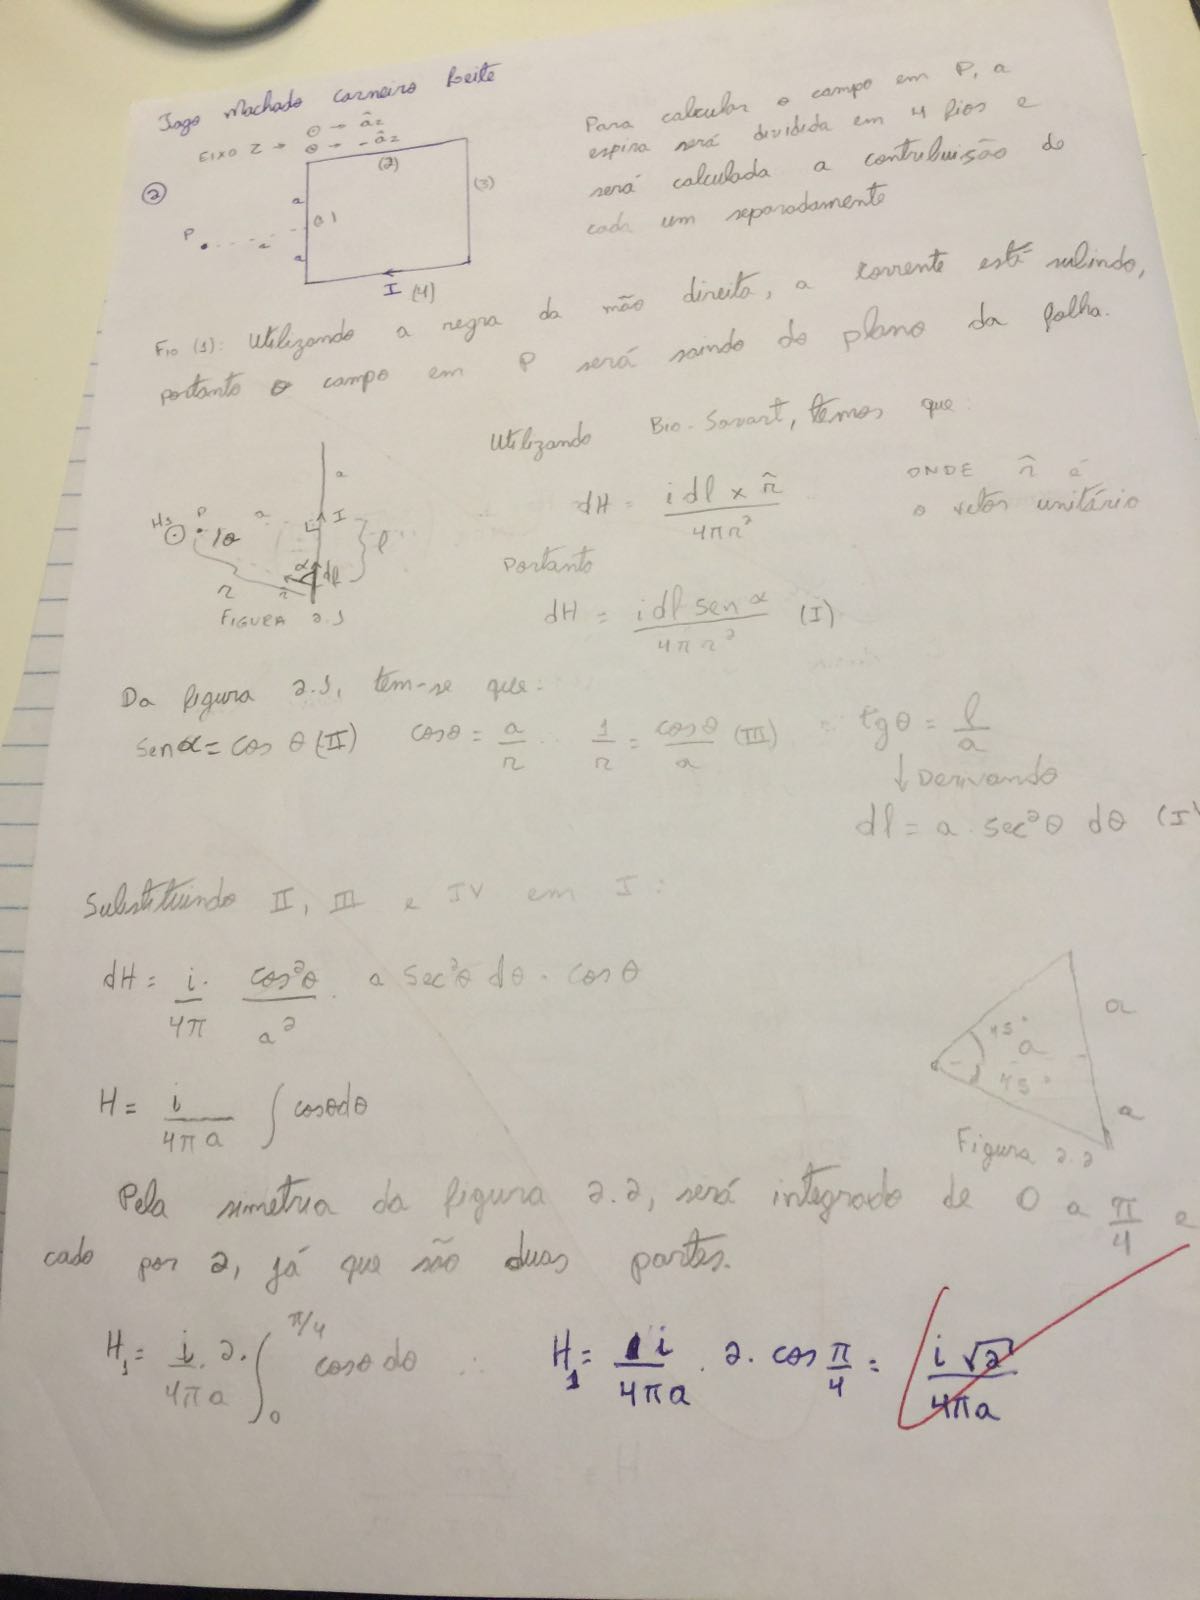 Iago Machado Carneiro Leite
EIXO Z → ⊙ → âz
⊗ → -âz
②
(2)
(3)
a
1
P
a
a
I (4)
Para calcular o campo em P, a
espira será dividida em 4 fios e
será calculada a contribuisão de
cada um separadamente
FIO (1): Utilizando a regra da mão direita, a corrente está subindo,
portanto o campo em P será saindo do plano da folha.
Utilizando Bio-Savart, temos que:
dH = i dl × r̂ / 4πr²
ONDE r̂ é
o vetor unitário
Portanto
dH = i dl sen α / 4πr² (I)
a
H1 P a I
θ l
α dl
r r̂
FIGURA 2.1
Da figura 2.1, tem-se que:
sen α = cos θ (II) cos θ = a/r ∴ 1/r = cos θ/a (III) tg θ = l/a
↓ Derivando
dl = a . sec²θ dθ (I
Substituindo II, III e IV em I:
dH = i/4π . cos²θ/a² . a sec²θ dθ . cos θ
H = i/4πa ∫ cosθdθ
45° a
a
45°
a
Figura 2.2
Pela simetria da figura 2.2, será integrado de 0 a π/4 e
cado por 2, já que são duas partes.
H₁ = i/4πa . 2 . ∫₀^π/4 cosθ dθ ∴ H₁ = i/4πa . 2 . cos π/4 = i√2/4πa